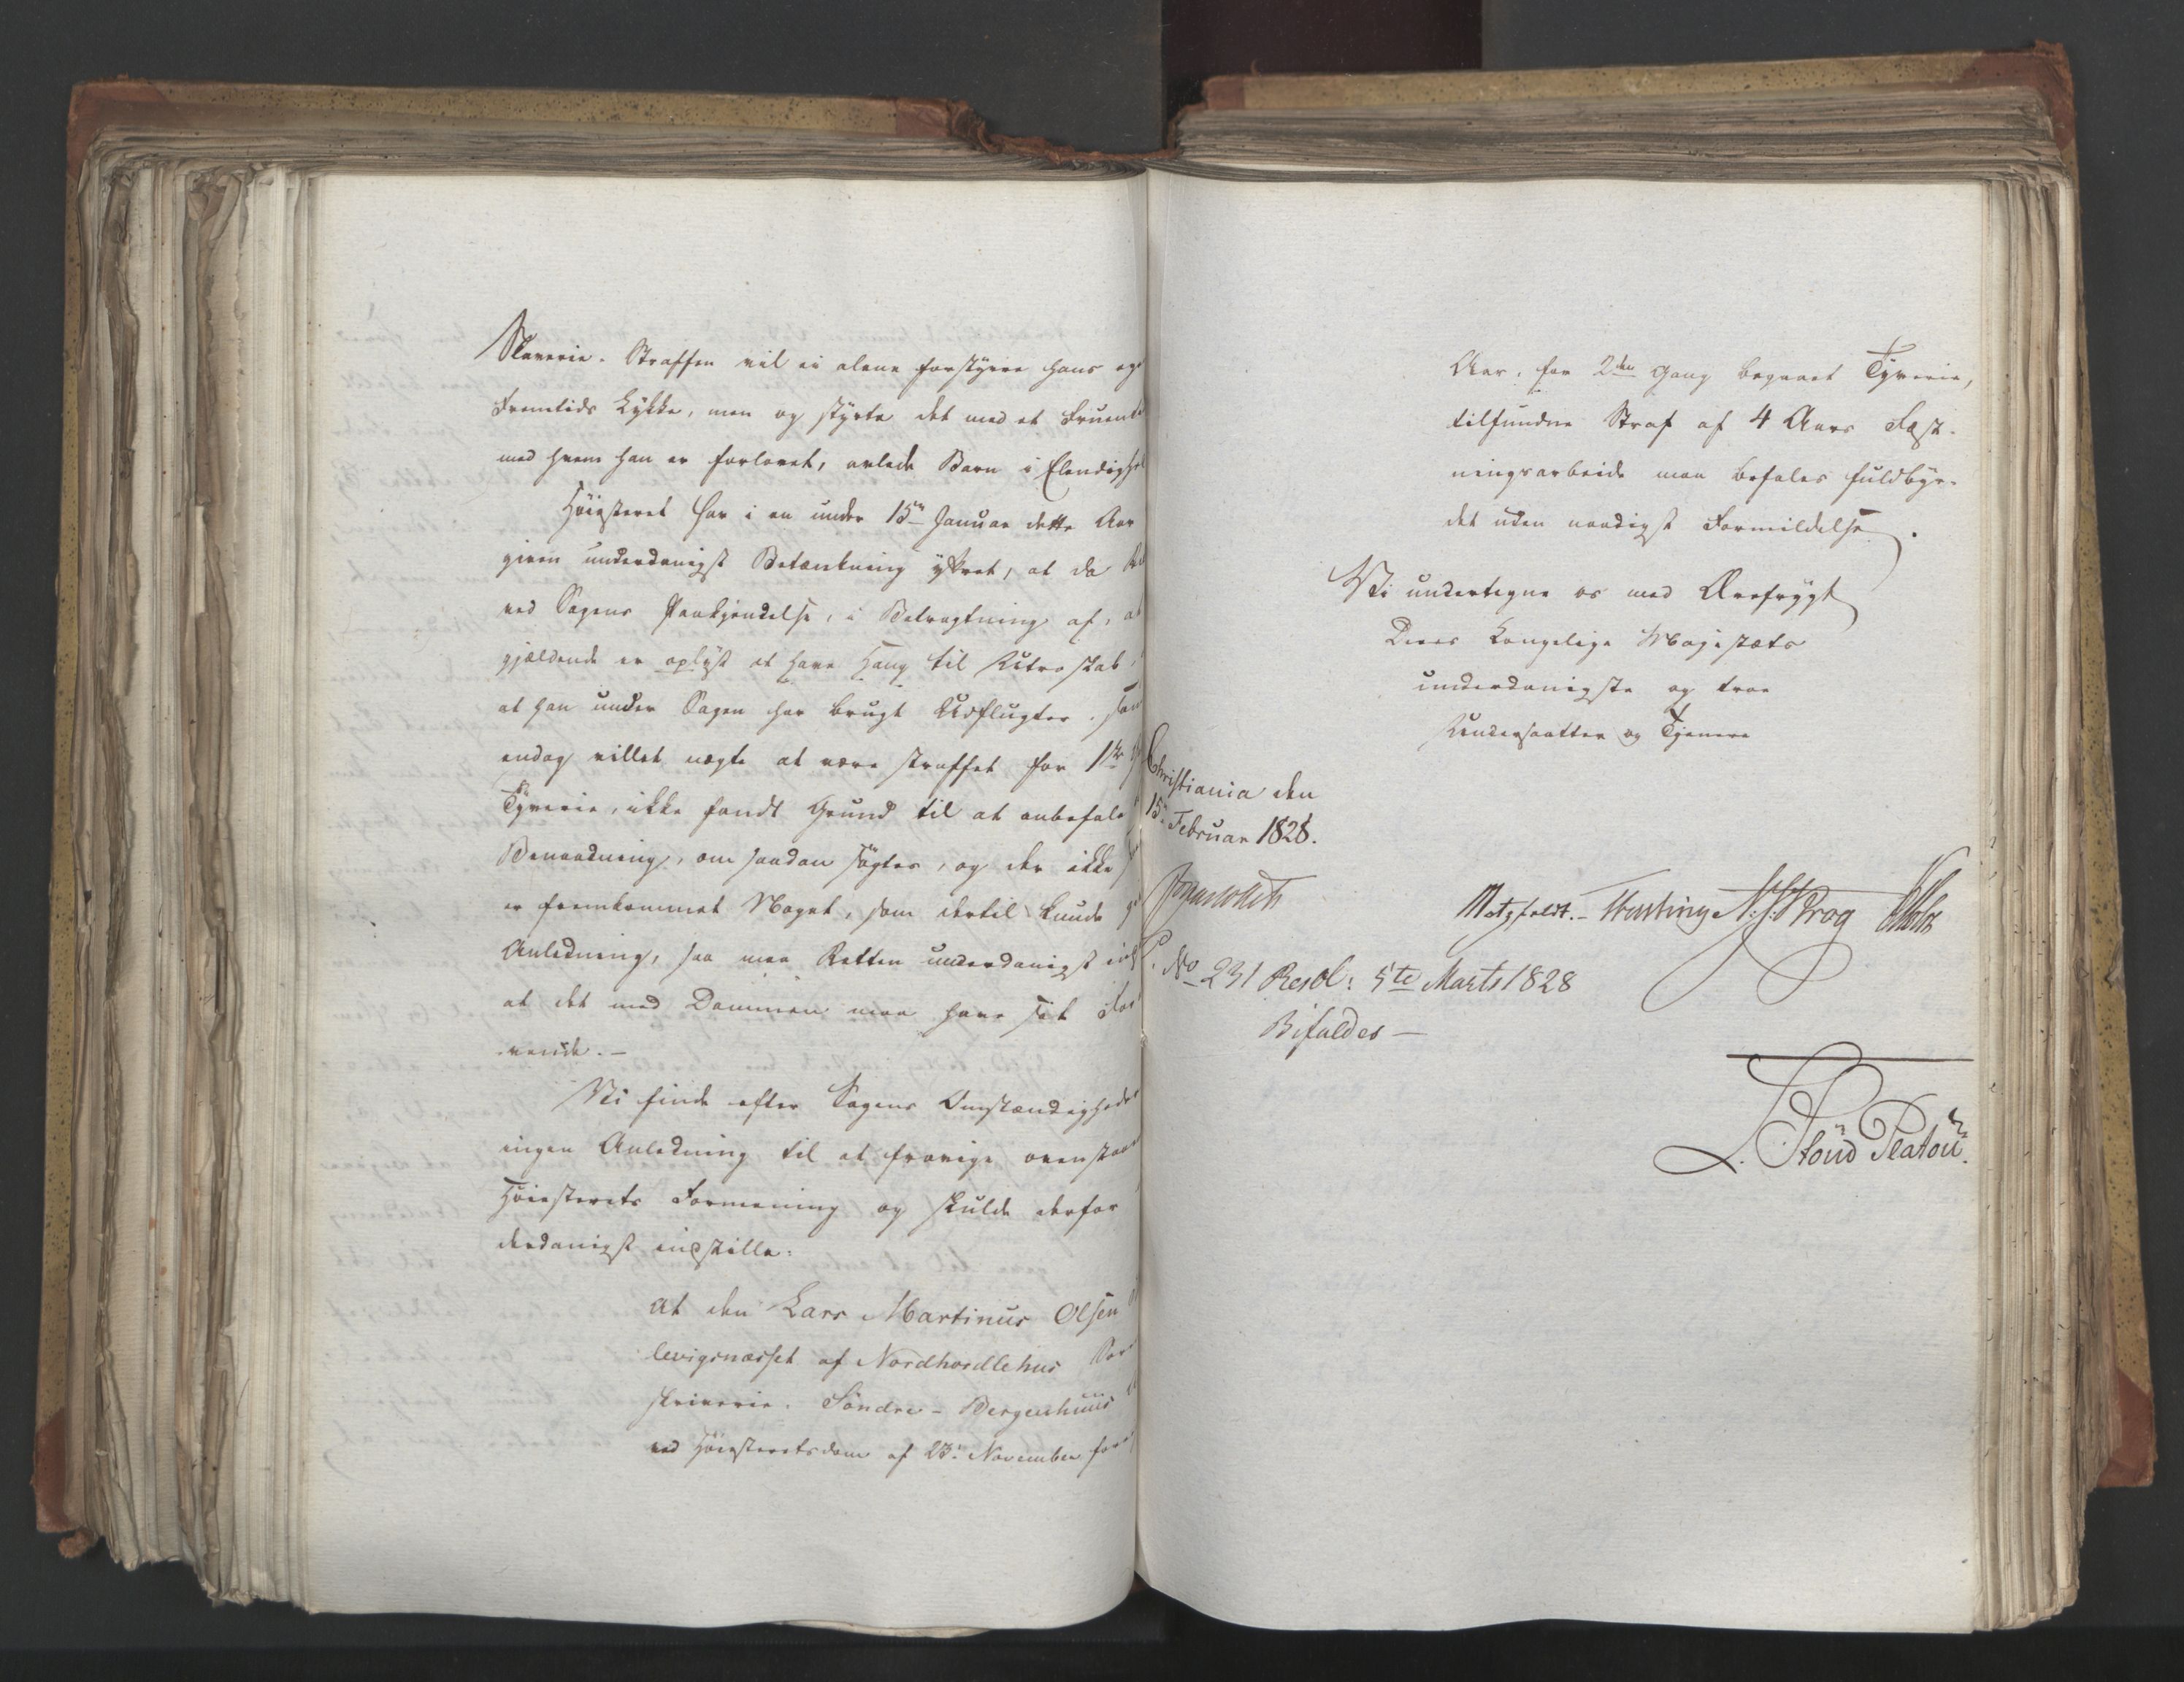 Slaverie. Straffen vil ei alene forstyrre hans eg
Fremtids Lykke, men og styrte det med et Fruent
med hvem han er forlovet, avlede Barn i Elendighe
Høiesteret har i en under 15de Januar dette Aar
given underdanigst Betænkning yttret, at da
ved Sagens Paakjendelse, i Betragtning af, at
gjældende er oplyst at have Hang til Utroskab,
at han under Sagen har brugt Udflugter, sam
endog villet nægte at være straffet for 1ste
Tyverie, ikke fandt Grund til at anbefale
Benaadning, om saadan søgtes, og der ikke
er fremkommet Noget, som dertil kunde
Anledning, saa maa Retten underdanigst ind
at det med Dommen maa have sit For
vende. -
Vi finde efter Sagens Omstændigheder
ingen Anledning til at fravige ovenstaae
Høiesterets Formening og skulde derfor
derdanigst indstille:
at den Lars Martinus Olsen
levigsnæsset af Nordhordlehns Sor
skriverie, Søndre-Bergenhuus
ved Høiesteretsdom af 23de November for
Aar, for 2den Gang begaaet Tyverie,
tilfundne Straf af 4 Aars Fæst-
ningsarbeide maa befales fuldbyr-
det uden naadigst Formildelse.
Vi undertegne os med Ærefrygt
Deres Kongelige Majestæts
underdanigste og troe
Undersaatter og Tjenere
Christiania den
15de Februar 1828.
Motzfeldt. - N. J. Krog
No 231 Resol: 5te Marts 1828
Bifaldes -
L. Stoud Platou.